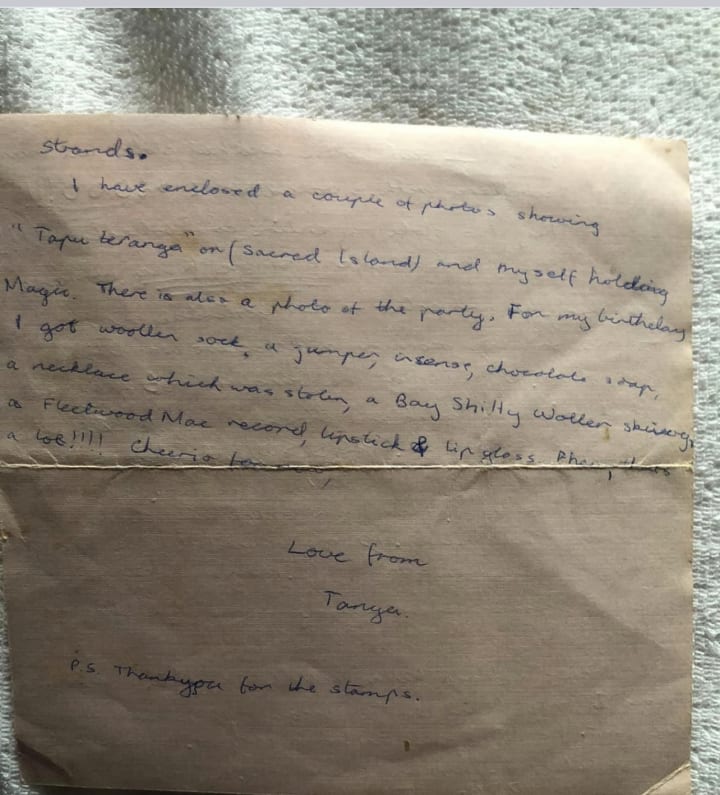 strands.
I have enclosed a couple of photos showing
"Tapu teranga" on (Sacred Island) and myself holding
Magic. There is also a photo of the party. For my birthday
I got woollen sock, a jumper, insense, chocolate soap,
a necklace which was stolen, a Bay Shilly Woller
a Fleetwood Mac record, lipstick & lip gloss. Phew, thats
a lot!!!! Cheerio
Love from
Tanya.
P.S. Thankyou for the stamps.